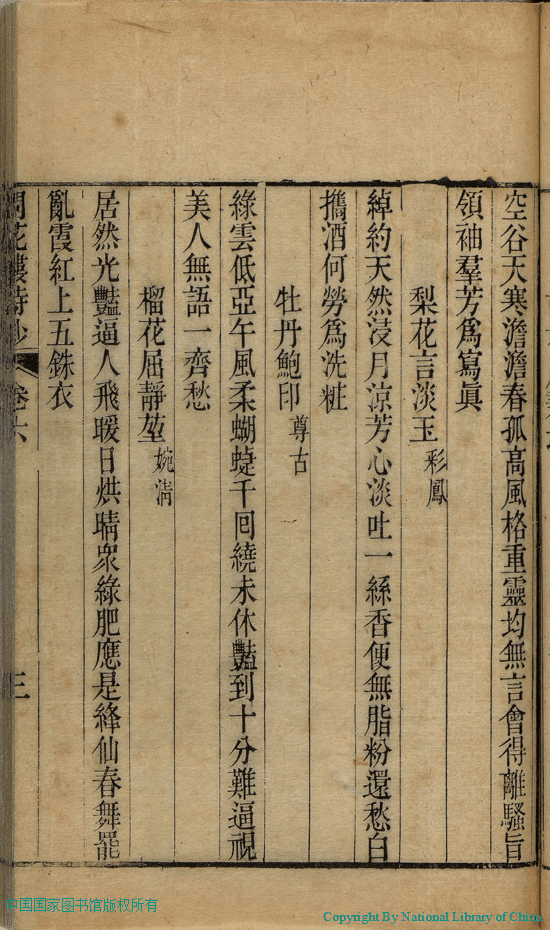 空谷天寒澹澹春孤高風格重靈均無言會得離騷旨
領袖羣芳爲寫眞
梨花言淡玉彩鳳
綽約天然浸月涼芳心淡吐一絲香便無脂粉還愁白
攜酒何勞爲洗粧
牡丹鮑印尊古
綠雲低亞午風柔蝴蜨千回繞未休豔到十分難逼視
美人無語一齊愁
榴花屈靜堃婉清
居然光豔逼人飛暖日烘晴衆綠肥應是絳仙春舞罷
亂霞紅上五銖衣
聞花樓詩鈔 卷六 三
中国国家图书馆版权所有
Copyright By National Library of China